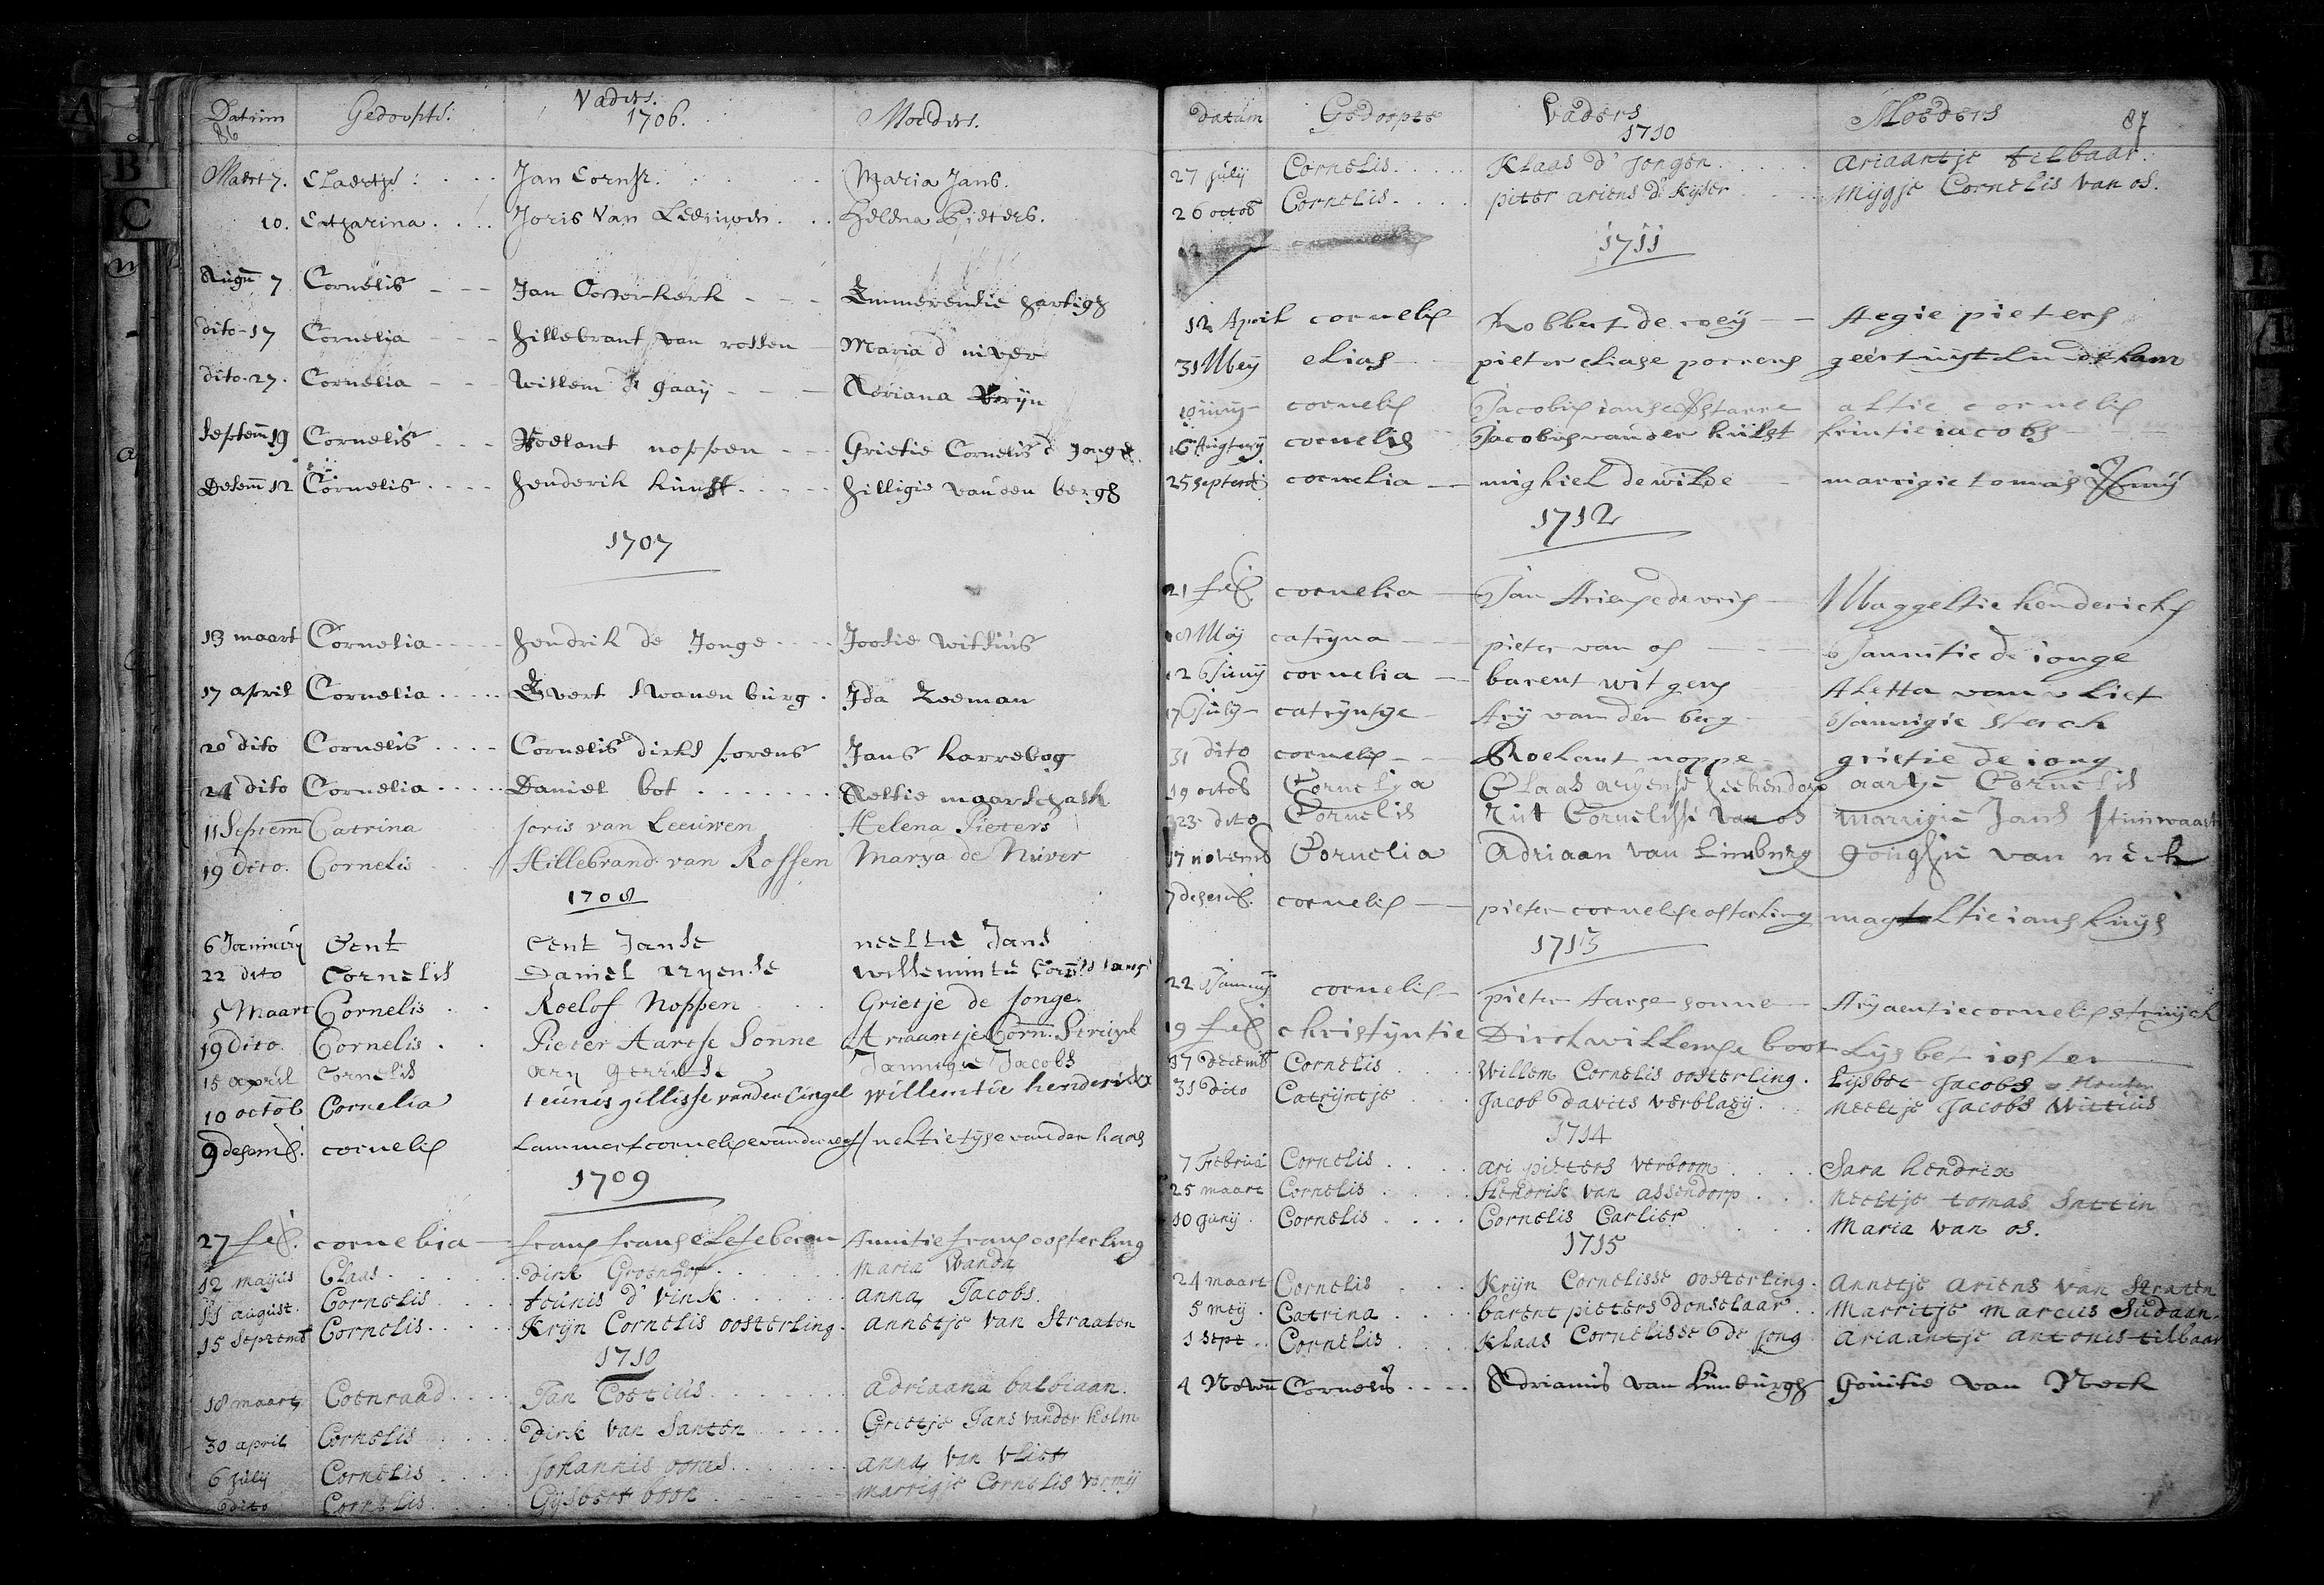 Datum Gedoopte. Vaders. Moeders.
86 1706.
Maert 7. Claertje Jan Cornsz. Maria Jans.
10. Catharina Joris Van Leeuwen Helena Pieters.
Augu 7 Cornelis Jan Oosterkerk Emmerensie hartigh
dito 17 Cornelia hillebrant van rossen Maria d niver
dito 27. Cornelia Willem d gaaij Adriana
Septem 19 Cornelis Roelant noppen Grietie Cornelis d Jonge
Desem 12 Cornelis henderik kunst hilligie van den bergh
1707
13 maart Cornelia hendrik de Jonge Jootie Wittius
17 april Cornelia Evert Swanenburg Ida Zeeman
20 dito Cornelis Cornelis dirks forens Jans karrebog
24 dito Cornelia Daniel bot Aeltie maartschalk
11 Septem Catrina Joris van Leeuwen Helena Pieters
19 Dito. Cornelis Hillebrand van Rossen Marya de Niver
1708
6 Jannuary Cent Cent Janse neeltie Jans
22 dito Cornelis Daniel aryense willemintie
5 Maart Cornelis Roelof Noppen Grietje de Jonge.
19 Dito. Cornelis Pieter Aartse Sonne Ariaantje Corn. Struyck
15 april Cornelis ary gerritse Jannigie Jacobs
10 octob Cornelia teunis gillisse vanden Cingel willemtie henderickx
9 desemb. cornelis Lammert cornelisse neltie tyse van der haas
1709
27 feb. cornelia frans franse Lefeberen Annitie frans oosterling
12 mayus Claas Dirk Groenhof Maria Wanda
11 august. Cornelis teunis d' Vink Anna Jacobs.
15 Septemb Cornelis Krijn Cornelis oosterling. Annetje van Straaten
1710
18 maart Coenraad Jan Coetius Adriaana balbiaan.
30 april Cornelis Dirk van Santen Grietje Jans vander Kolm
6 July Cornelis Johannis ooms Anna van Vliet
dito Cornelis Gijsbert boon Marrigje Cornelis Vermij
datum Gedoopte Vaders Moeders 87
1710
27 July Cornelis Klaas d' Jongen Ariaantje tilbaar.
26 octob Cornelis piter ariens de Kijser Mijgje Cornelis van os.
1711
12 April cornelis Robbert de roeij Aegie pieters
31 Meij elias pieter eliase porrens geertuijt
19 junij cornelis Jacobus ianse Starre altie cornelis
16 cornelis Jacobus van der kulst krintie iacobs
25 septemb cornelia mighiel de wilde marrigie tomas
1712
21 feb. cornelia Jan Ariense de vris Maggeltie hendericks
Maij catryna pieter van os Jannitie de ionge
12 Junij cornelia barent witgens Aletta van vliet
17 July catryntge Ary van der berg Jannigie sterck
31 dito cornelis Roelant noppe grietie de iong
19 octob Cornelya Claas aryense leekendorp aartje Cornelis
23 dito Cornelis Rut Cornelisse van os marrigie Jans
17 novemb Cornelia Adriaan van Limburg van neck
7 desemb. cornelis pieter cornelisse osterling magteltie ians
1713
22 cornelis pieter Aarse sonne Aryaentie cornelis struyck
19 feb christyntie Dirck willemse boot Lysbet iosten
17 Decemb Cornelis Willem Cornelis oosterling. Lijsbet Jacobs
31 dito Catrijntje Jacob Davits Verblaeij. Neeltje Jacobs Wittius
1714
7 Februa Cornelis Ari pieters Verboom Sara hendrix
25 maart Cornelis Hendrik van assendorp Neeltje tomas Sattin
10 Junij. Cornelis Cornelis Carlier Maria van os.
1715
24 maart Cornelis Krijn Cornelisse oosterling. Annetje ariens van Straten
5 meij. Catrina barent pieters Donselaar Marritje marcus Sudaan.
1 Sept Cornelis Klaas Cornelisse de Jong Ariaantje antonis tilbaar
4 Novem Cornelis Adrianus van Limburgh Gouitie van Neck